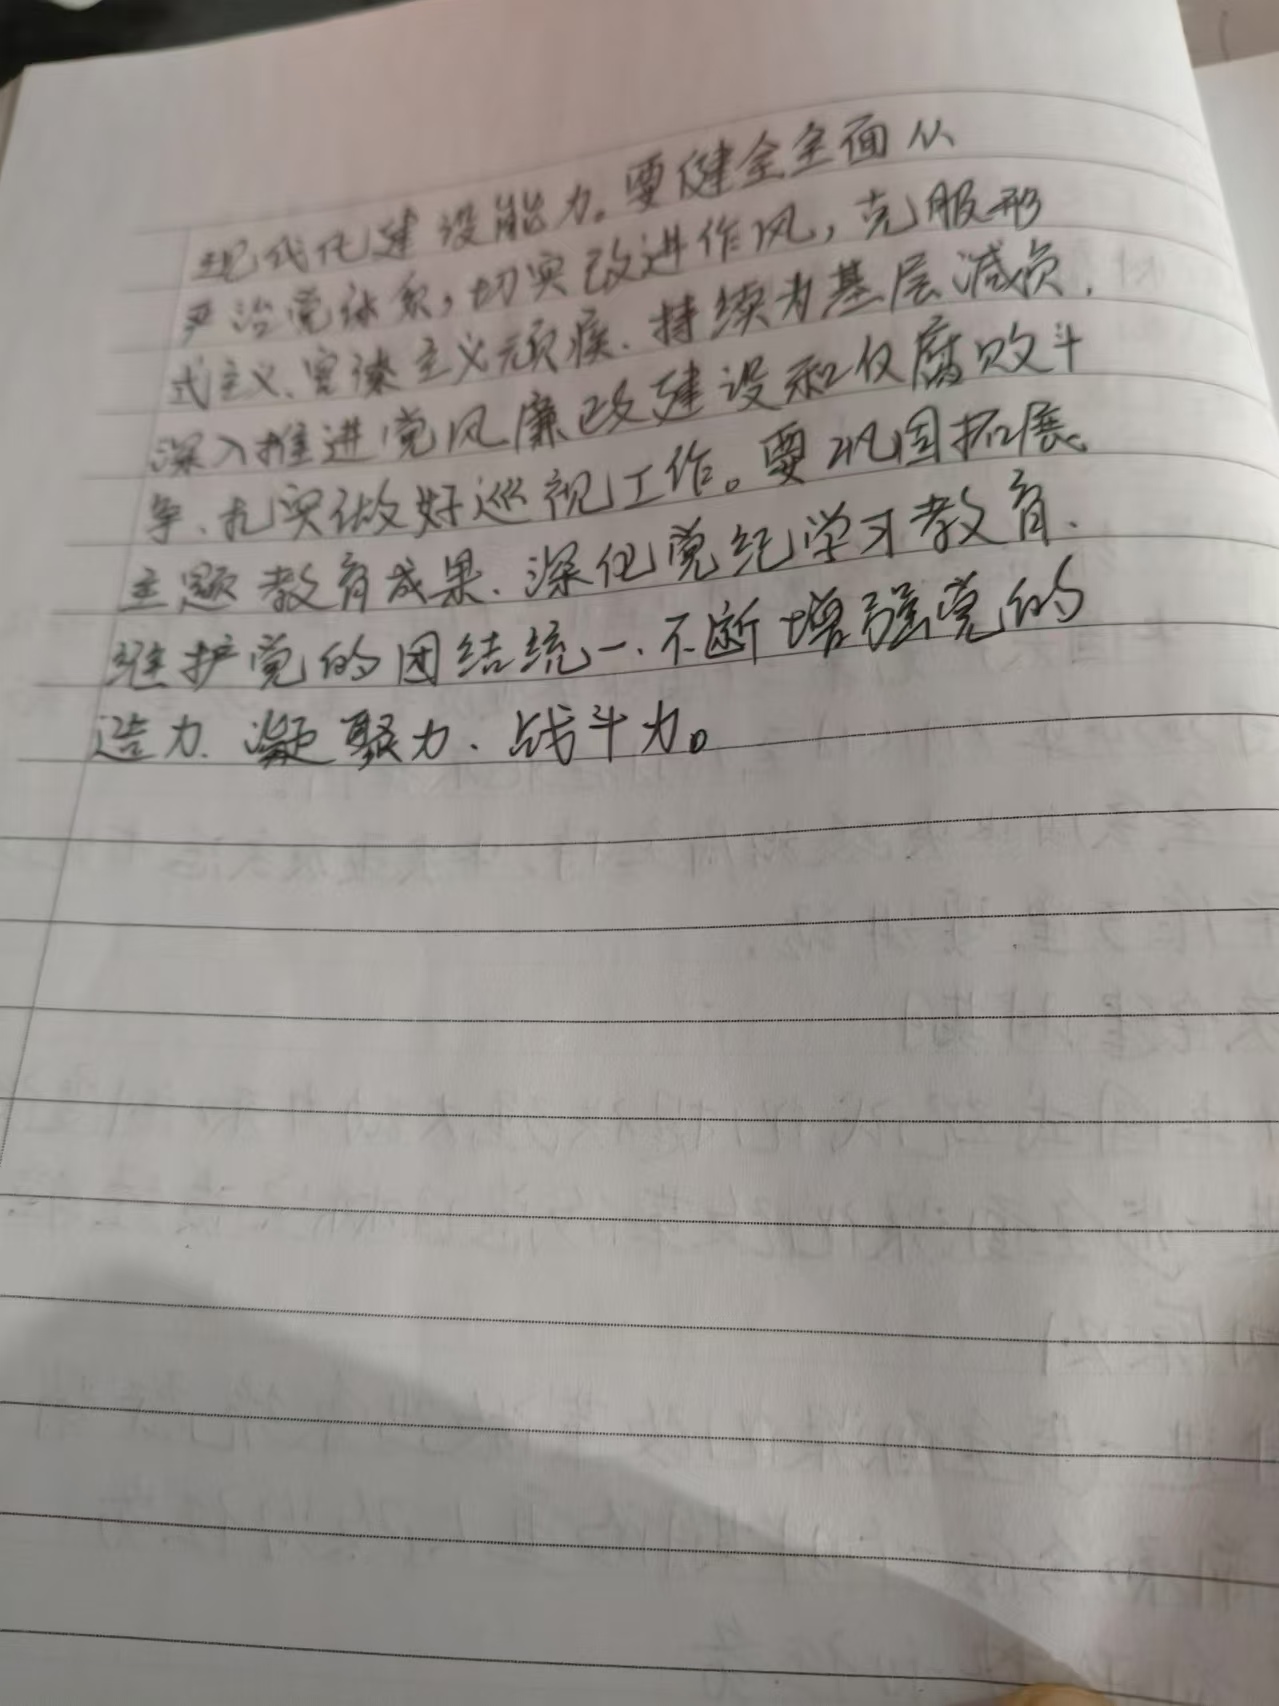 现代化建设能力。要健全全面从
严治党体系，切实改进作风，克服形
式主义、官僚主义顽疾、持续为基层减负，
深入推进党风廉政建设和反腐败斗
争、扎实做好巡视工作。要巩固拓展
主题教育成果、深化党纪学习教育、
维护党的团结统一、不断增强党的
造力、凝聚力、战斗力。